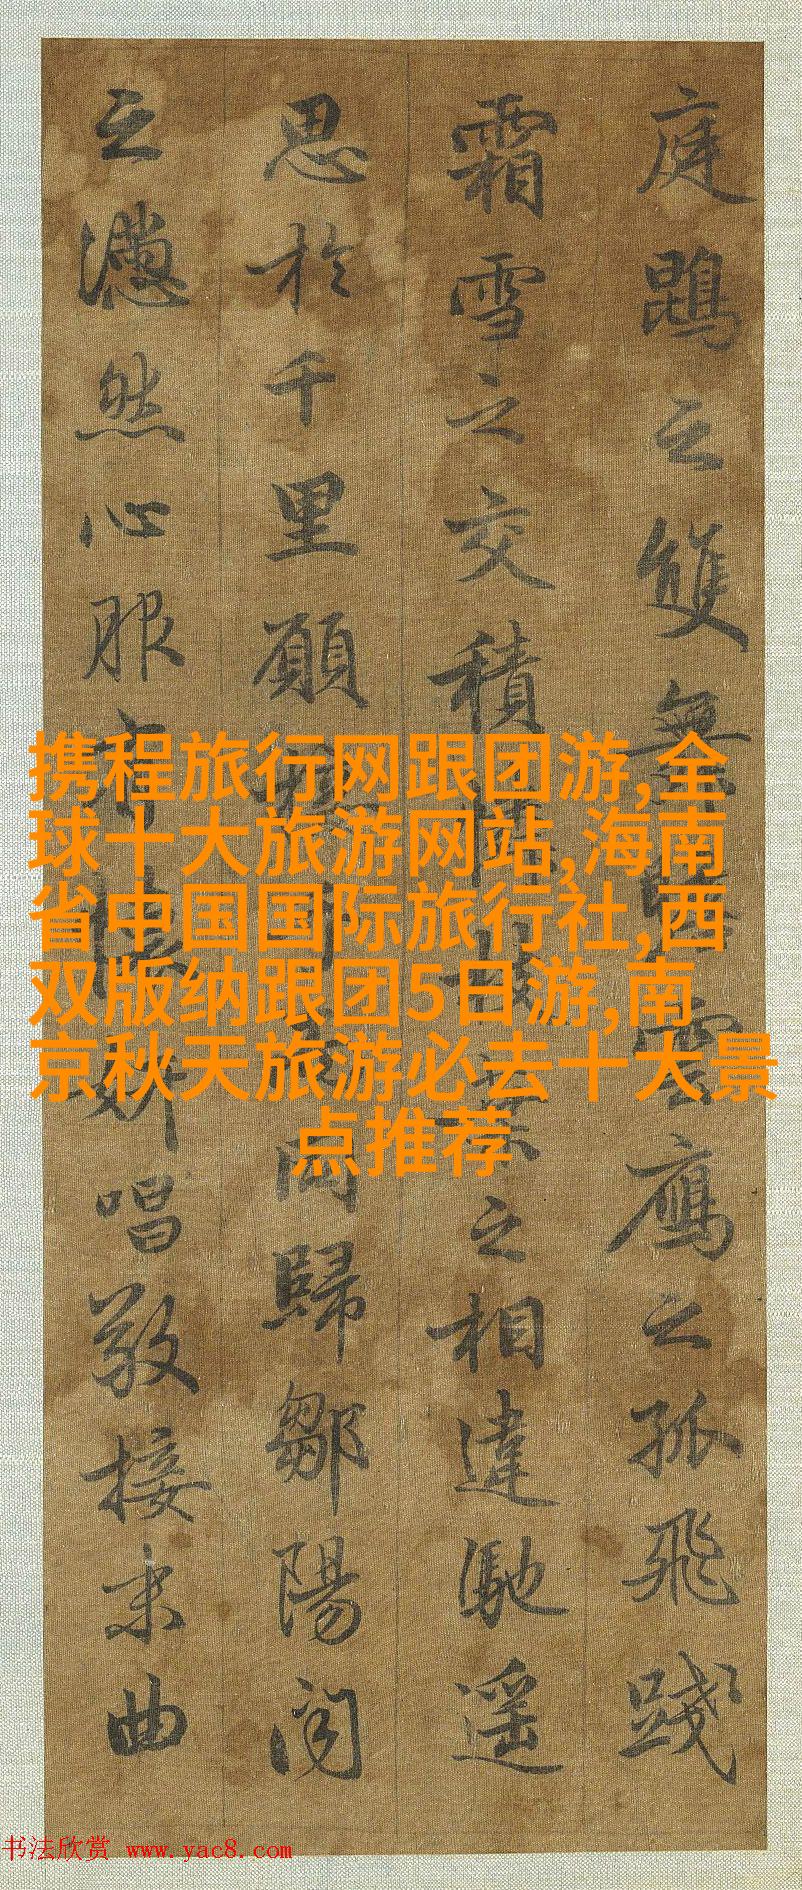 庭鵾之雙舞雲鴈之孤飛踐
霜雪之交積葉之相違馳遥
思於千里願同歸鄒陽聞
之懣然心服有懷妍唱敬接末曲
携程旅行网跟团游,全
球十大旅游网站,海南
省中国国际旅行社,西
双版纳跟团5日游,南
京秋天旅游必去十大景
点推荐
书法欣赏 www.yac8.com